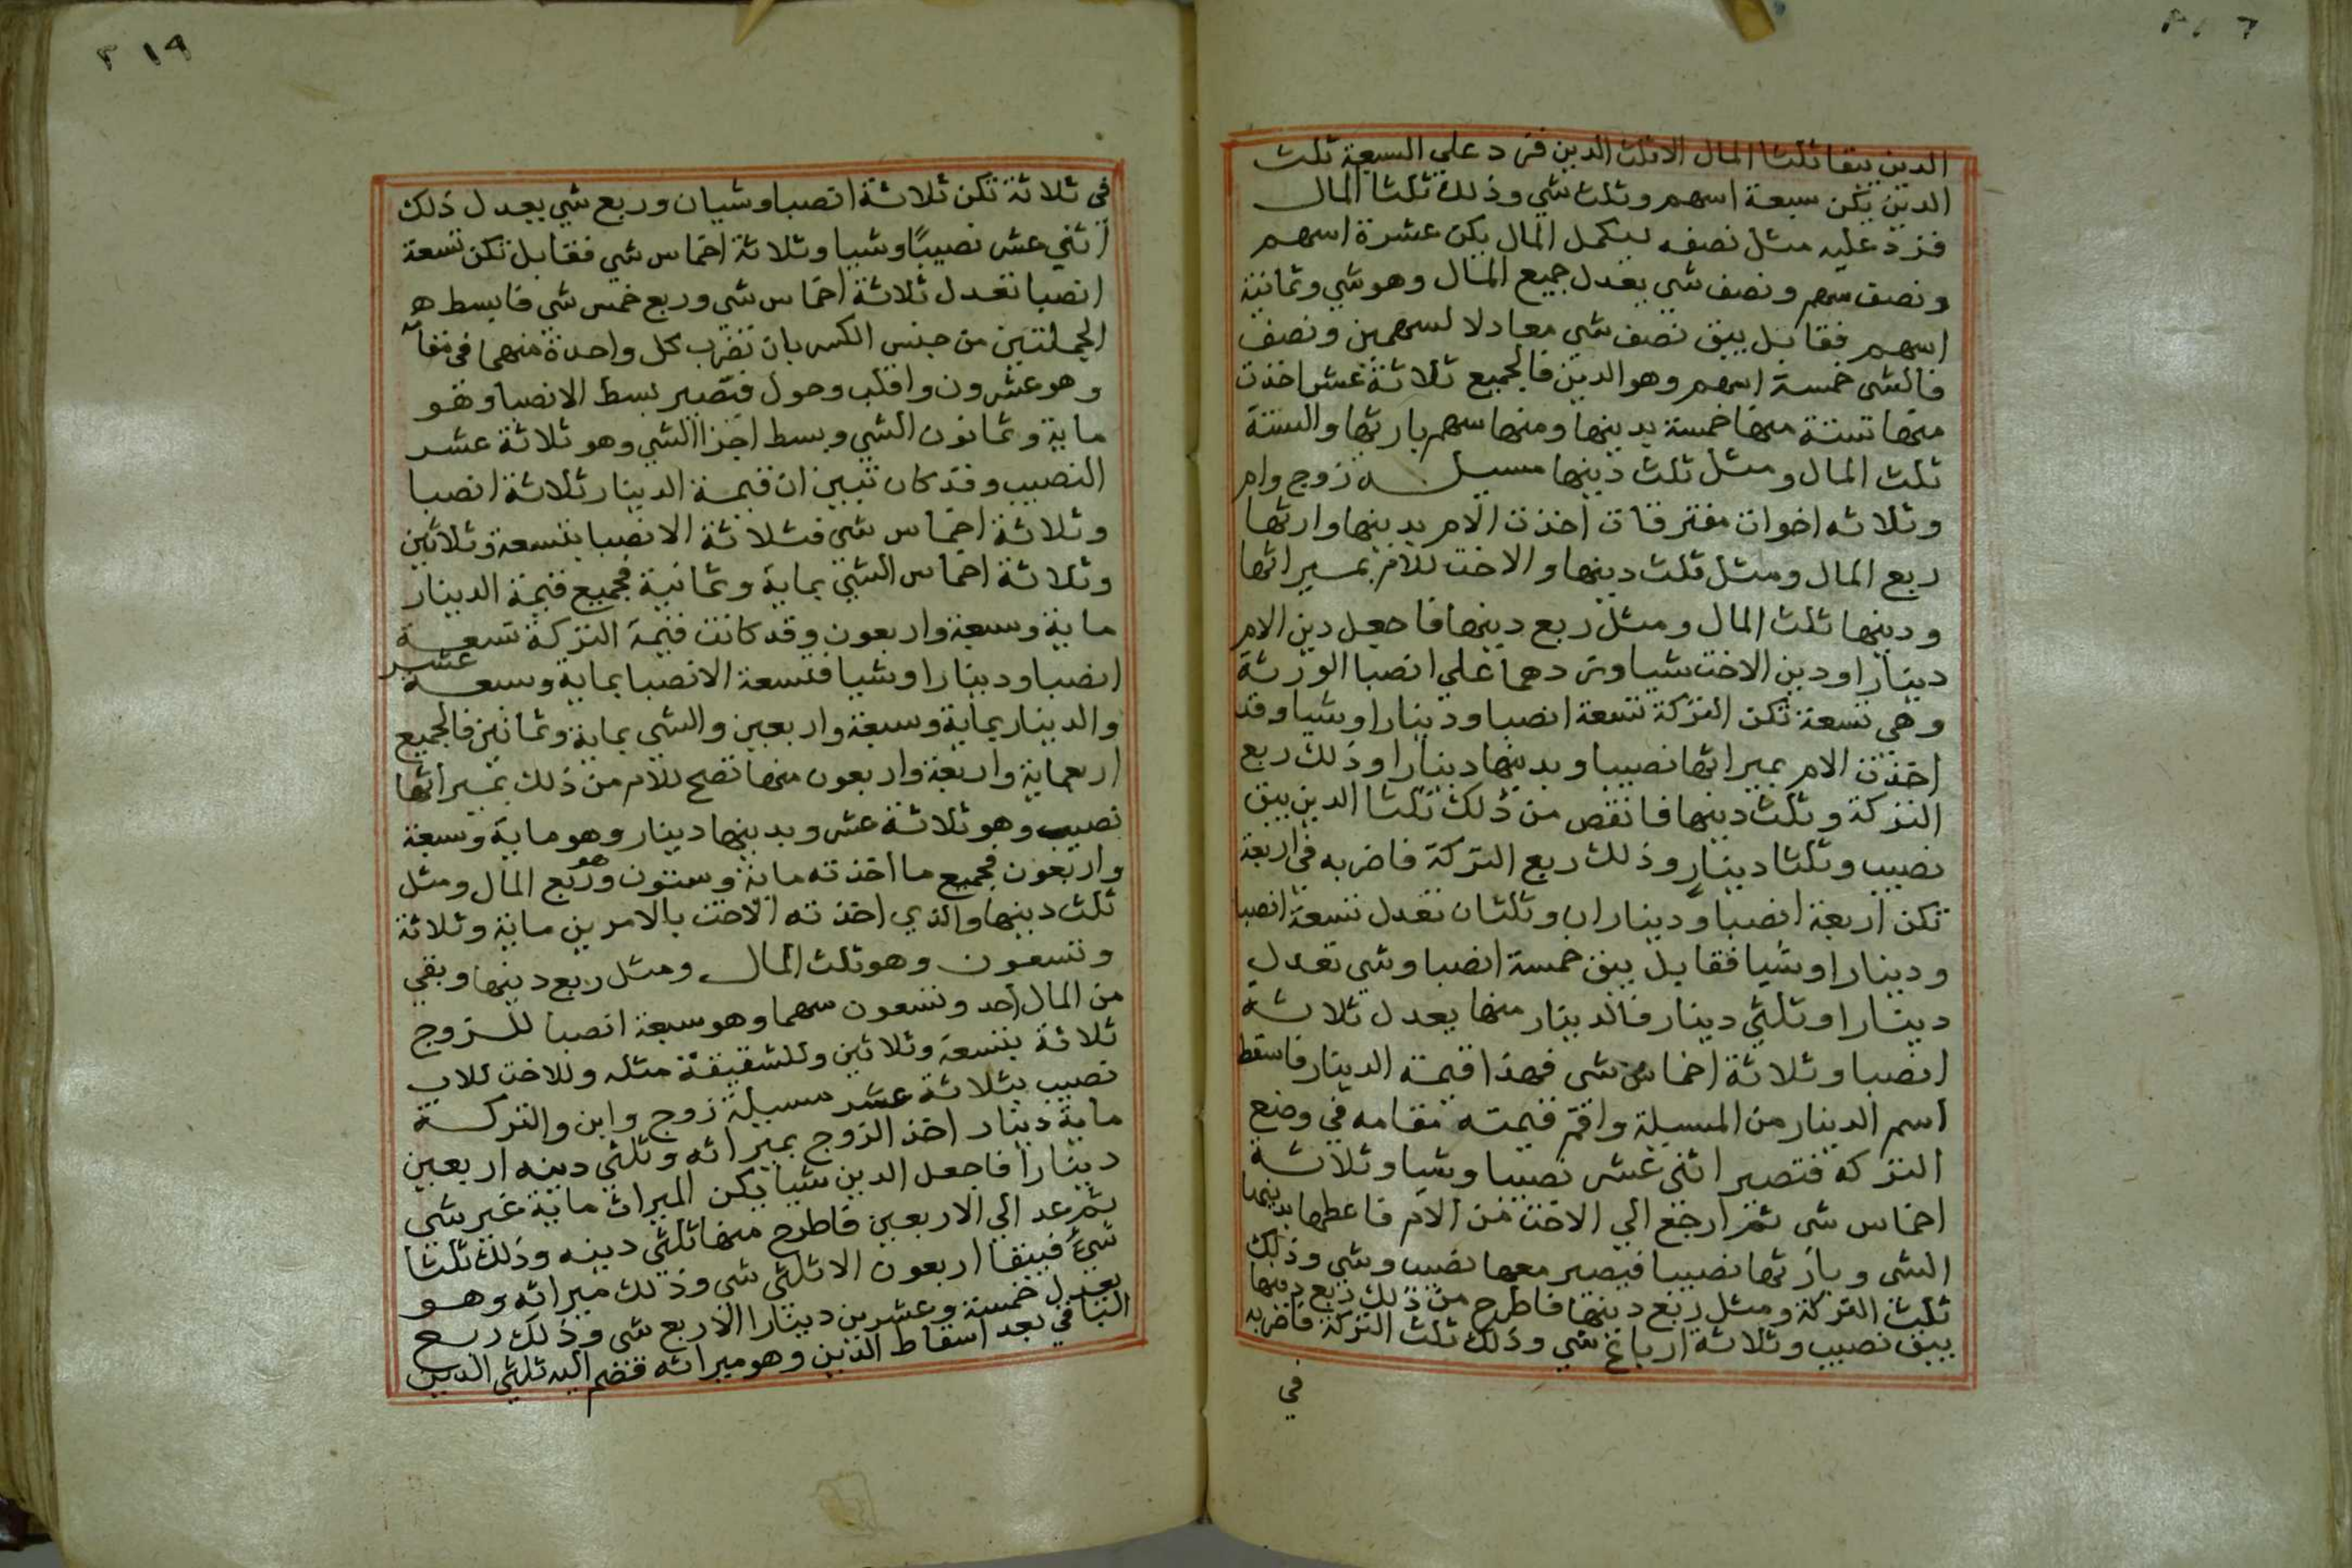 الدين يبقا ثلثا المال الا ثلث الدين فزد علي السبعة ثلث
الدين يكن سبعة اسهم وثلث شي وذلك ثلثا المال
فزد عليه مثل نصفه ليكمل المال يكن عشرة اسهم
ونصف سهم ونصف شي يعدل جميع المال وهو شي وثمانية
اسهم فقابل يبق نصف شي معادلا لسهمين ونصف
فالشي خمسة اسهم وهو الدين فالجميع ثلاثة عشر اخذت
منها ستة منها خمسة بدينها ومنها سهم بارثها والستة
ثلث المال ومثل ثلث دينها مسيلة زوج وام
وثلاثه اخوات مفترقات اخذت الام بدينها وارثها
ربع المال ومثل ثلث دينها والاخت للام بميراثها
ودينها ثلث المال ومثل ربع دينها فاجعل دين الام
دينارا ودين الاخت شيا وزدهما علي انصبا الورثة
وهي تسعة تكن التركة تسعة انصبا ودينارا وشيا وقد
اخذت الام بميراثها نصيبا وبدينها دينارا وذلك ربع
التركة وثلث دينها فانقص من ذلك ثلثا الدين يبق
نصيب وثلثا دينار وذلك ربع التركة فاضربه في اربعة
تكن اربعة انصبا وديناران وثلثان تعدل تسعة انصبا
ودينارا وشيا فقابل يبق خمسة انصبا وشي تعدل
دينارا وثلثي دينار فالدينار منها يعدل ثلاثة
انصبا وثلاثة اخماس شي فهذا قيمة الدينار فاسقط
اسم الدينار من المسيلة واقم قيمته مقامه في وضع
التركة فتصير اثني عشر نصيبا وشيا وثلاثة
اخماس شي ثم ارجع الي الاخت من الام فاعطها بدينها
الشي وبارثها نصيبا فيصير معها نصيب وشي وذلك
ثلث التركة ومثل ربع دينها فاطرح من ذلك ربع دينها
يبق نصيب وثلاثة ارباع شي وذلك ثلث التركة فاضربه
في
٣١٩
في ثلاثة تكن ثلاثة انصبا وشيان وربع شي يعدل ذلك
اثني عشر نصيبًا وشيا وثلاثة اخماس شي فقابل تكن تسعة
انصبا تعدل ثلاثة اخماس شي وربع خمس شي فابسط
الجملتين من جنس الكسر بان تضرب كل واحدة منهما في
وهو عشرون واقلب وحول فتصير بسط الانصبا وهو
ماية وثمانون الشي وبسط اجزا الشي وهو ثلاثة عشر
النصيب وقد كان تبين ان قيمة الدينار ثلاثة انصبا
وثلاثة اخماس شي فثلاثة الانصبا بتسعة وثلاثين
وثلاثة اخماس الشي بماية وثمانية فجميع قيمة الدينار
ماية وسبعة واربعون وقد كانت قيمة التركة تسعة
انصبا ودينارا وشيا فتسعة الانصبا بماية وسبعة عشر
والدينار بماية وسبعة واربعين والشي بماية وثمانين فالجميع
اربعماية واربعة واربعون منها تصح للام من ذلك بميراثها
نصيب وهو ثلاثة عشر وبدينها دينار وهو ماية وسبعة
واربعون فجميع ما اخذته ماية وستون وهو ربع المال ومثل
ثلث دينها والذي اخذته الاخت بالامرين ماية وثلاثة
وتسعون وهو ثلث المال ومثل ربع دينها وبقي
من المال احد وتسعون سهما وهو سبعة انصبا للزوج
ثلاثة بتسعة وثلاثين وللشقيقة مثله وللاخت للاب
نصيب بثلاثة عشر مسيلة زوج وابن والتركة
ماية دينار اخذ الزوج بميراثه وثلثي دينه اربعين
دينارا فاجعل الدين شيا يكن الميراث ماية غير شي
ثم عد الي الاربعين فاطرح منها ثلثي دينه وذلك ثلثا
شيءٍ فيبقا اربعون الا ثلثي شي وذلك ميراثه وهو
يعدل خمسة وعشرين دينارا الا ربع شي وذلك ربع
الباقي بعد اسقاط الدين وهو ميراثه فضم اليه ثلثي الدين